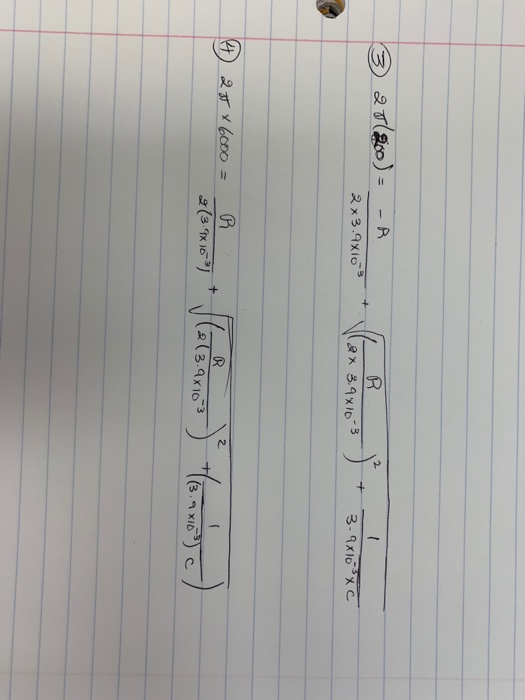 ③ 2π(200) = -R/(2×3.9×10⁻³) + √((R/(2×3.9×10⁻³))² + 1/(3.9×10⁻³×C))
④ 2π × 6000 = R/(2(3.9×10⁻³)) + √((R/(2(3.9×10⁻³))² + (1/((3.9×10⁻³)C))